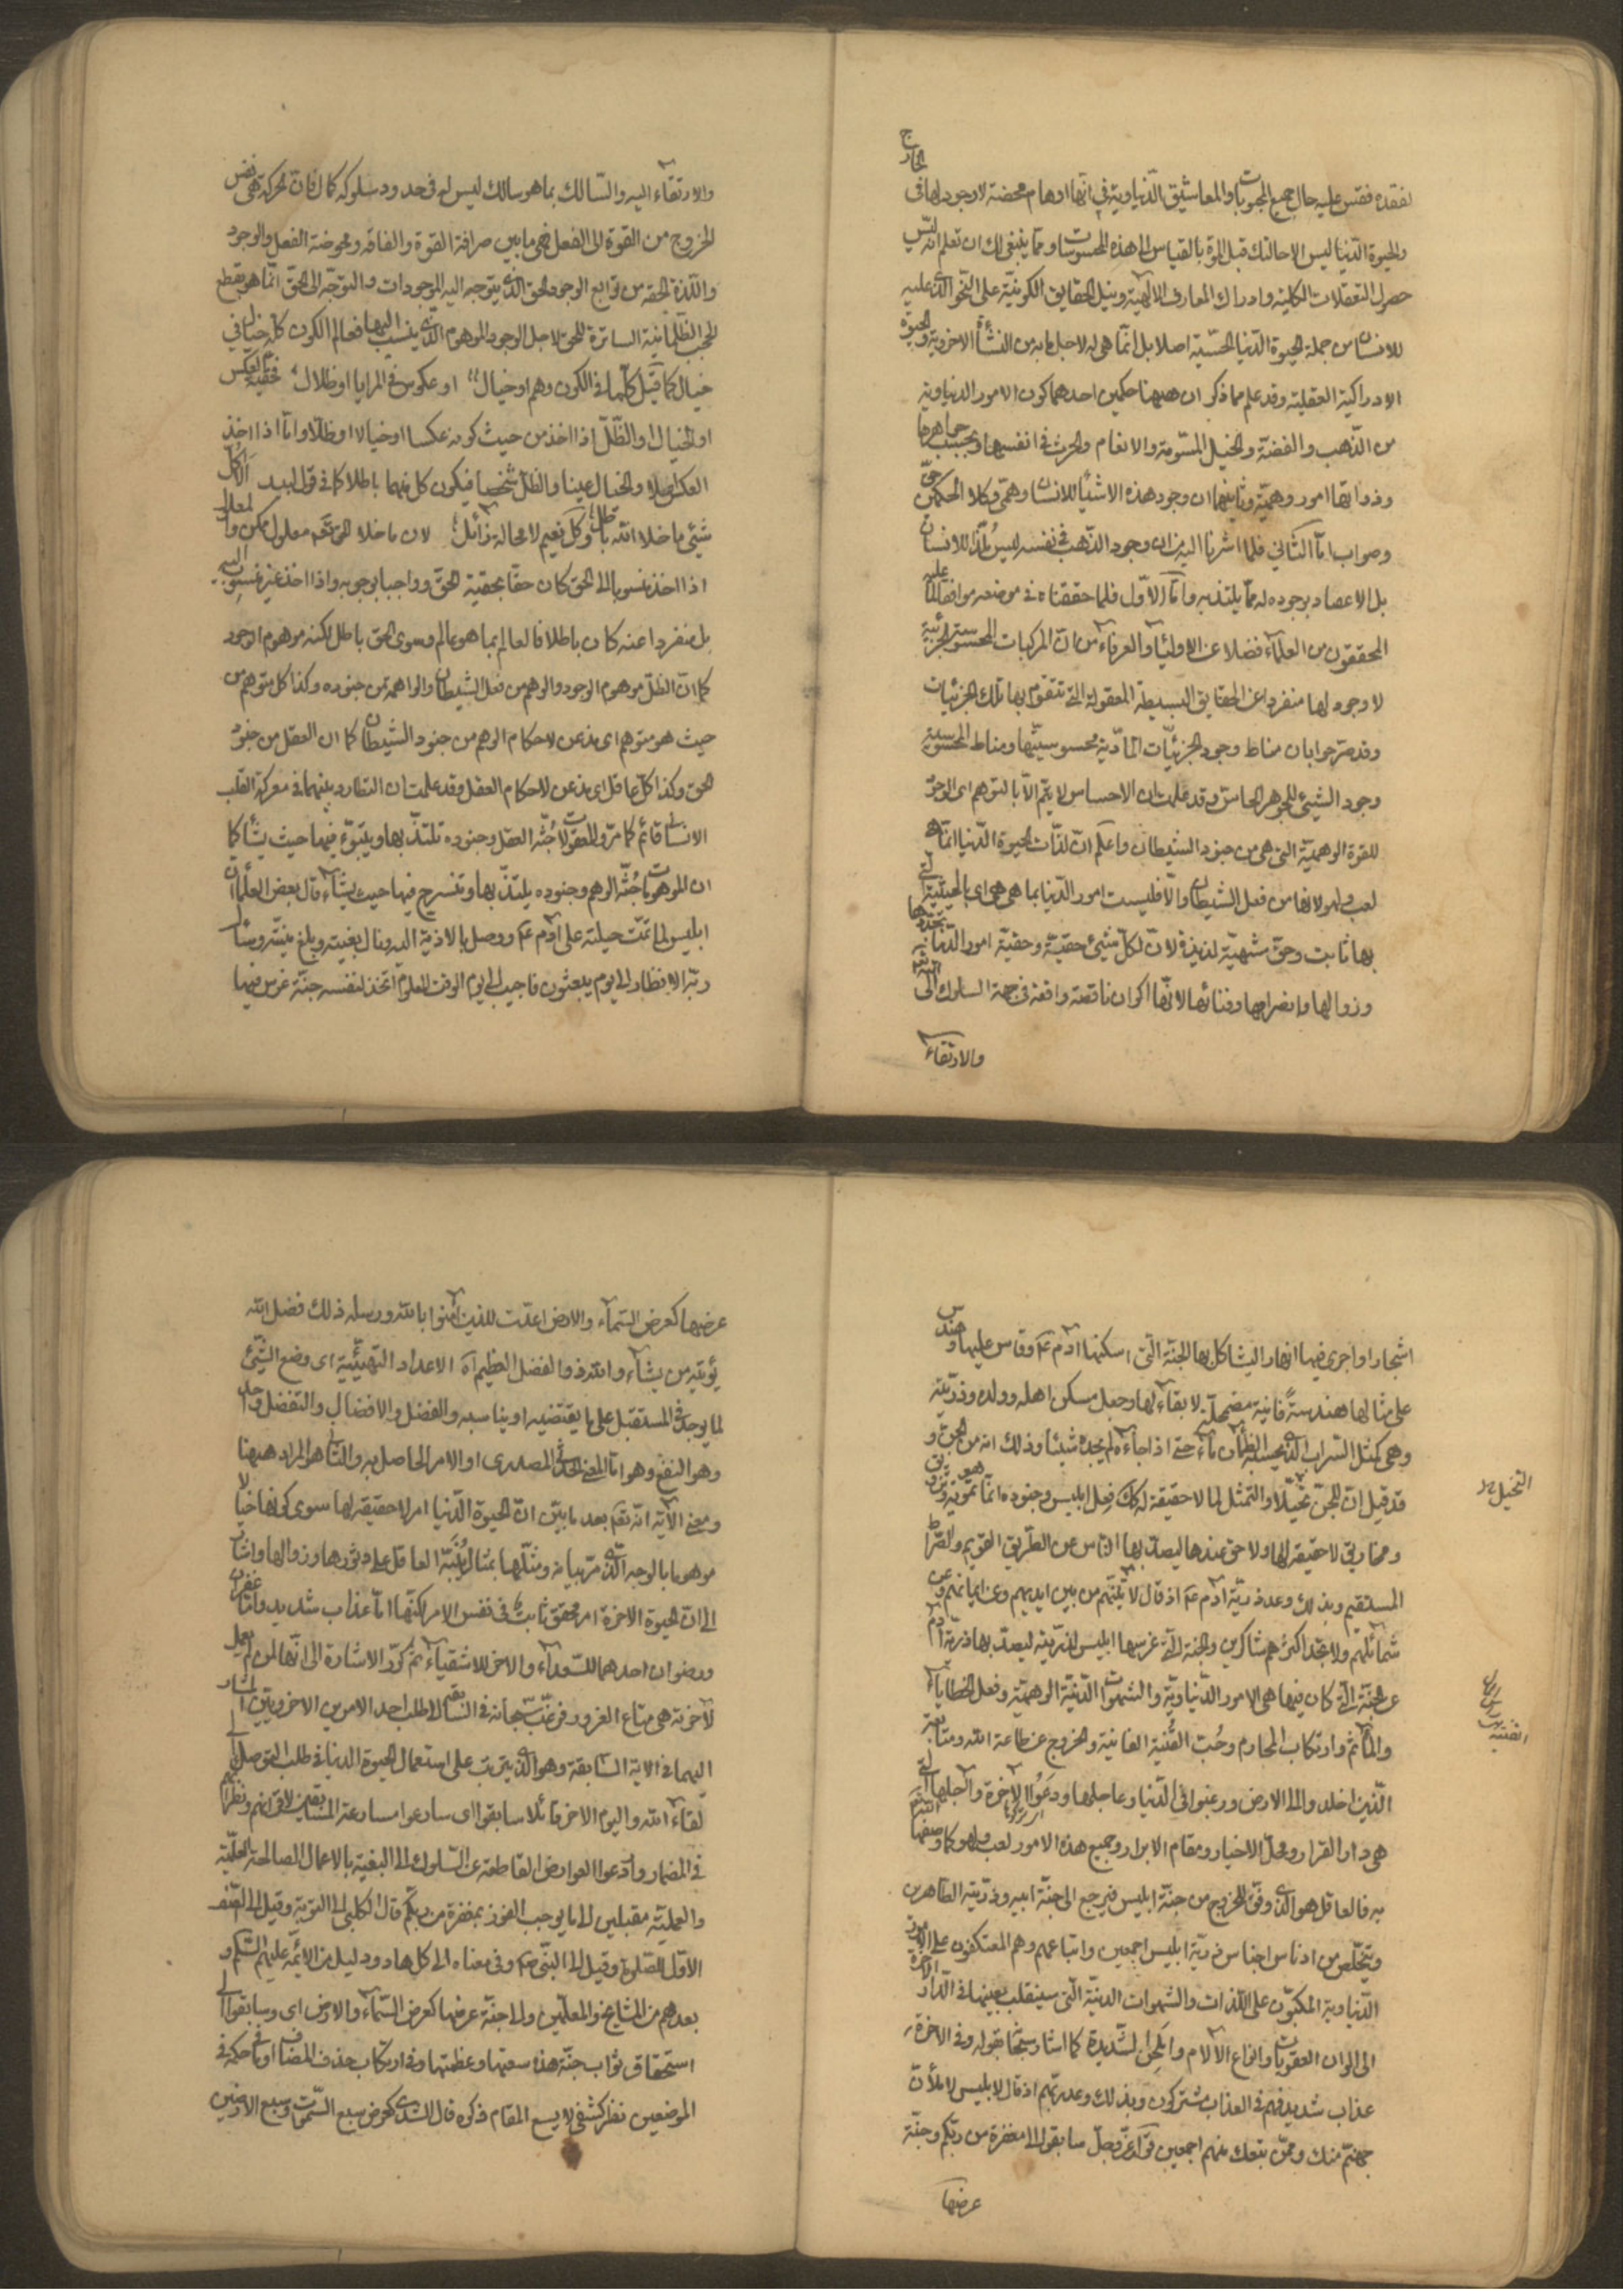 لفقده فقس عليه حال جميع المحبوبات والمعاشيق الدنياوية في انها اوهام محضة لا وجود لها في الخارج
والحيوة الدنيا ليس الا حالتك قبل الموت بالقياس الى هذه المحسوسات ومما ينبغى لك ان تعلم انه ليس
حصول التعقلات الكلية وادراك المعارف الالهية ونيل الحقايق الكونية على النحو الذى عليه
للانسان من جملة الحيوة الدنيا الحسية اصلا بل انما هى له لاجل ما به من النشأة الاخروية والحيوة
الادراكية العقلية وقد علم مما ذكر ان ههنا حكمين احدهما كون الامور الدنياوية
من الذهب والفضة والخيل المسومة والانعام والحرث في انفسها وبحسب جواهرها
وذواتها امور وهمية وثانيهما ان وجود هذه الاشياء للانسان وهمى وكلا الحكمين حق
وصواب اما الثاني فلما اشرنا اليه من ان وجود الذهب في نفسه ليس ملذا للانسان
بل الاعتقاد بوجوده له مما يلتذ به واما الاول فلما حققناه في موضعه موافقا لما عليه
المحققون من العلماء فضلا عن الاولياء والعرفاء من ان المركبات المحسوسة الجزئية
لا وجود لها منفردا عن الحقايق البسيطة المعقولة التى تتقوم بها تلك الجزئيات
وقد صرحوا بان مناط وجود الجزئيات المادية محسوسيتها ومناط المحسوسية
وجود الشيئ للجوهر الحاس وقد علمت ان الاحساس لا يتم الا بالتوهم اى الوجود
للقوة الوهمية التى هى من جنود الشيطان واعلم ان لذات الحيوة الدنيا انما هى
لعب ولهو لانها من فعل الشيطان والا فليست امور الدنيا بما هى هى اى بالحيثية التى
بها ثابت وحق مشهية لذيذة لان لكل شيئ حقية وحقية امور الدنيا تجددها
وزوالها وانصرامها وفنائها لانها اكوان ناقصة واقعة في جهة السلوك الى الله
والارتقاء
والارتقاء اليه والسالك بما هو سالك ليس له في حدود سلوكه كمال فان الحركة هى نفس
الخروج من القوة الى الفعل فهى ما بين صرافة القوة والفاقه ومحوضة الفعل والوجود
واللذة الحقه من توابع الوجود الحق الذى يتوجه اليه الموجودات والتوجه الى الحق انما هو بقطع
الحجب الظلمانية الساترة للحق لاجل الوجود الموهوم الذى ينسب اليها فعالم الكون كله خيال في
خيال كما قيل كلما في الكون وهم او خيال او عكوس في المرايا او ظلال فحقية العكس
او الخيال او الظل اذا اخذ من حيث كونه عكسا او خيالا او ظلا واما اذا اخذ
العكس اصلا والخيال عينا والظل شخصا فيكون كل منهما باطلا كما في قول لبيد الا كل
شيئ ما خلا الله باطل وكل نعيم لا محالة زائل لان ما خلا الحق تعم معلول ممكن والمعلول
اذا اخذ منسوبا الى الحق كان حقا بحقية الحق وواجبا بوجوبه واذا اخذ غير منسوب اليه
بل منفردا عنه كان باطلا فالعالم بما هو عالم وسوى الحق باطل لكنه موهوم الوجود
كما ان الظل موهوم الوجود والوهم من فعل الشيطان والواهمة من جنوده وكذا كل متوهم من
حيث هو متوهم اى مذعن لاحكام الوهم من جنود الشيطان كما ان العقل من جنود
الحق وكذا كل عاقل اى مذعن لاحكام العقل وقد علمت ان التطارد بينهما في معركة القلب
الانسانى قائم كما مر والمعقولات جنة العقل وجنوده تلتذ بها ويتبوء فيها حيث يشاء كما
ان الموهومات جنة الوهم وجنوده يلتذ بها وتسرح فيها حيث يشاء قال بعض العلماء ان
ابليس لما تمت حيلته على آدم عم ووصل بالاذية اليه ونال بغيته وبلغ منيته وسأل
ربه الانظار الى يوم يبعثون فاجيب الى يوم الوقت المعلوم اتخذ لنفسه جنة غرس فيها
اشجارا واجرى فيها انهارا ليشاكل بها الجنة التى اسكنها ادم عم وقاس عليها وهندس
على مثالها هندسة فانية مضمحلة لا بقاء لها وجعل مسكن اهله وولده وذريته
وهى كمثل السراب الذى يحسبه الظمآن ماء حتى اذا جاءه لم يجده شيئا وذلك انه من الجن و
قد قيل ان للجن تخيلا والتمثل لما لا حقيقة له كك فعل ابليس وجنوده انما هو تمويه وتزويق
التخيل
ومخاريق لا حقيقة لها ولا حق عندها ليصد بها الناس عن الطريق القويم والصراط
المستقيم وبذلك وعد ذرية ادم عم اذ قال لآتينهم من بين ايديهم وعن ايمانهم وعن
شمائلهم ولا تجد اكثرهم شاكرين والجنة التى غرسها ابليس لذريته ليصد بها ذرية آدم
عن الجنة التى كان فيها هى الامور الدنياوية والشهوات الدنية الوهمية وفعل الخطايا
والمآثم وارتكاب المحارم وحب القنية الفانية والخروج عن طاعة الله ومتابعة
الذين اخلدوا الى الارض ورغبوا في الدنيا وعاجلها ودعوا الاخرة وآجلها التى
هى دار القرار ومحل الاخيار ومقام الابرار وجميع هذه الامور لعب ولهو كما وصفها الله تعم
به فالعاقل هو الذى وفق للخروج من جنة ابليس فيرجع الى جنة ابيه وذريته الطاهرين
ويتخلص من ادناس اجناس ذرية ابليس اجمعين واتباعهم وهم المعتكفون على الامور
الدنياوية المكبون على اللذات والشهوات الدنية التى سينقلب بعينها في الدار الاخرة
الى الوان العقوبات وانواع الآلام والمحن الشديدة كما اشار سبحانه بقوله وفى الاخرة
عذاب شديد فهم في العذاب مشتركون وبذلك وعد ربهم اذ قال لابليس لاملأن
جهنم منك وممن تبعك منهم اجمعين قوله عز وجل سابقوا الى مغفرة من ربكم وجنة
عرضها
عرضها كعرض السماء والارض اعدت للذين آمنوا بالله ورسله ذلك فضل الله
يؤتيه من يشاء والله ذو الفضل العظيم الاعداد التهيئية اى وضع الشيئ
لما يوجد في المستقبل على ما يقتضيه او يناسبه والفضل والافضال والتفضل واحد
وهو النفع وهو اما المعنى الحدثى المصدرى او الامر الحاصل به والثانى هو المراد ههنا
ومعنى الآية انه تعم بعد ما بين ان الحيوة الدنيا امر لا حقيقة لها سوى كونها خيالا
موهوما بالوجه الذى مر بيانه ومثلها بمثال لينبه العاقل على دثورها وزوالها واشار
الى ان الحيوة الاخرة امر محقق ثابت في نفس الامر لكنها اما عذاب شديد واما مغفرة
ورضوان احدهما للسعداء والاخر للاشقياء ثم كرر الاشارة الى انها لمن لم يعمل
لآخرته هى متاع الغرور فرغب سبحانه في السابقة لطلب احد الامرين الاخرويين المشار
اليهما في الاية السابقة وهو الذى يترتب على استعمال الحيوة الدنيا في طلب التوصل الى
لقاء الله واليوم الاخر قائلا سابقوا اى سارعوا مسارعة المسابقين لاقرانهم ونظرائهم
في المضمار وادعوا العوارض القاطعة عن السلوك الى البغية بالاعمال الصالحة العلمية
والعملية مقبلين الى ما يوجب الفوز بمغفرة من ربكم قال الكلبى الى التوبة وقيل الى الصف
الاول للصلوة وقيل الى النبى ص وفى معناه الى كل هاد ودليل من الائمة عليهم السلم و
بعدهم من المشايخ والمعلمين والى جنة عرضها كعرض السماء والارض اى وسابقوا الى
استحقاق ثواب جنة هذه سعتها وعظمتها وفى ارتكاب حذف المضاف او ما في حكمه في
الموضعين نظر كشفى لا يسع المقام ذكره قال السدى كعرض سبع السموات وسبع الارضين